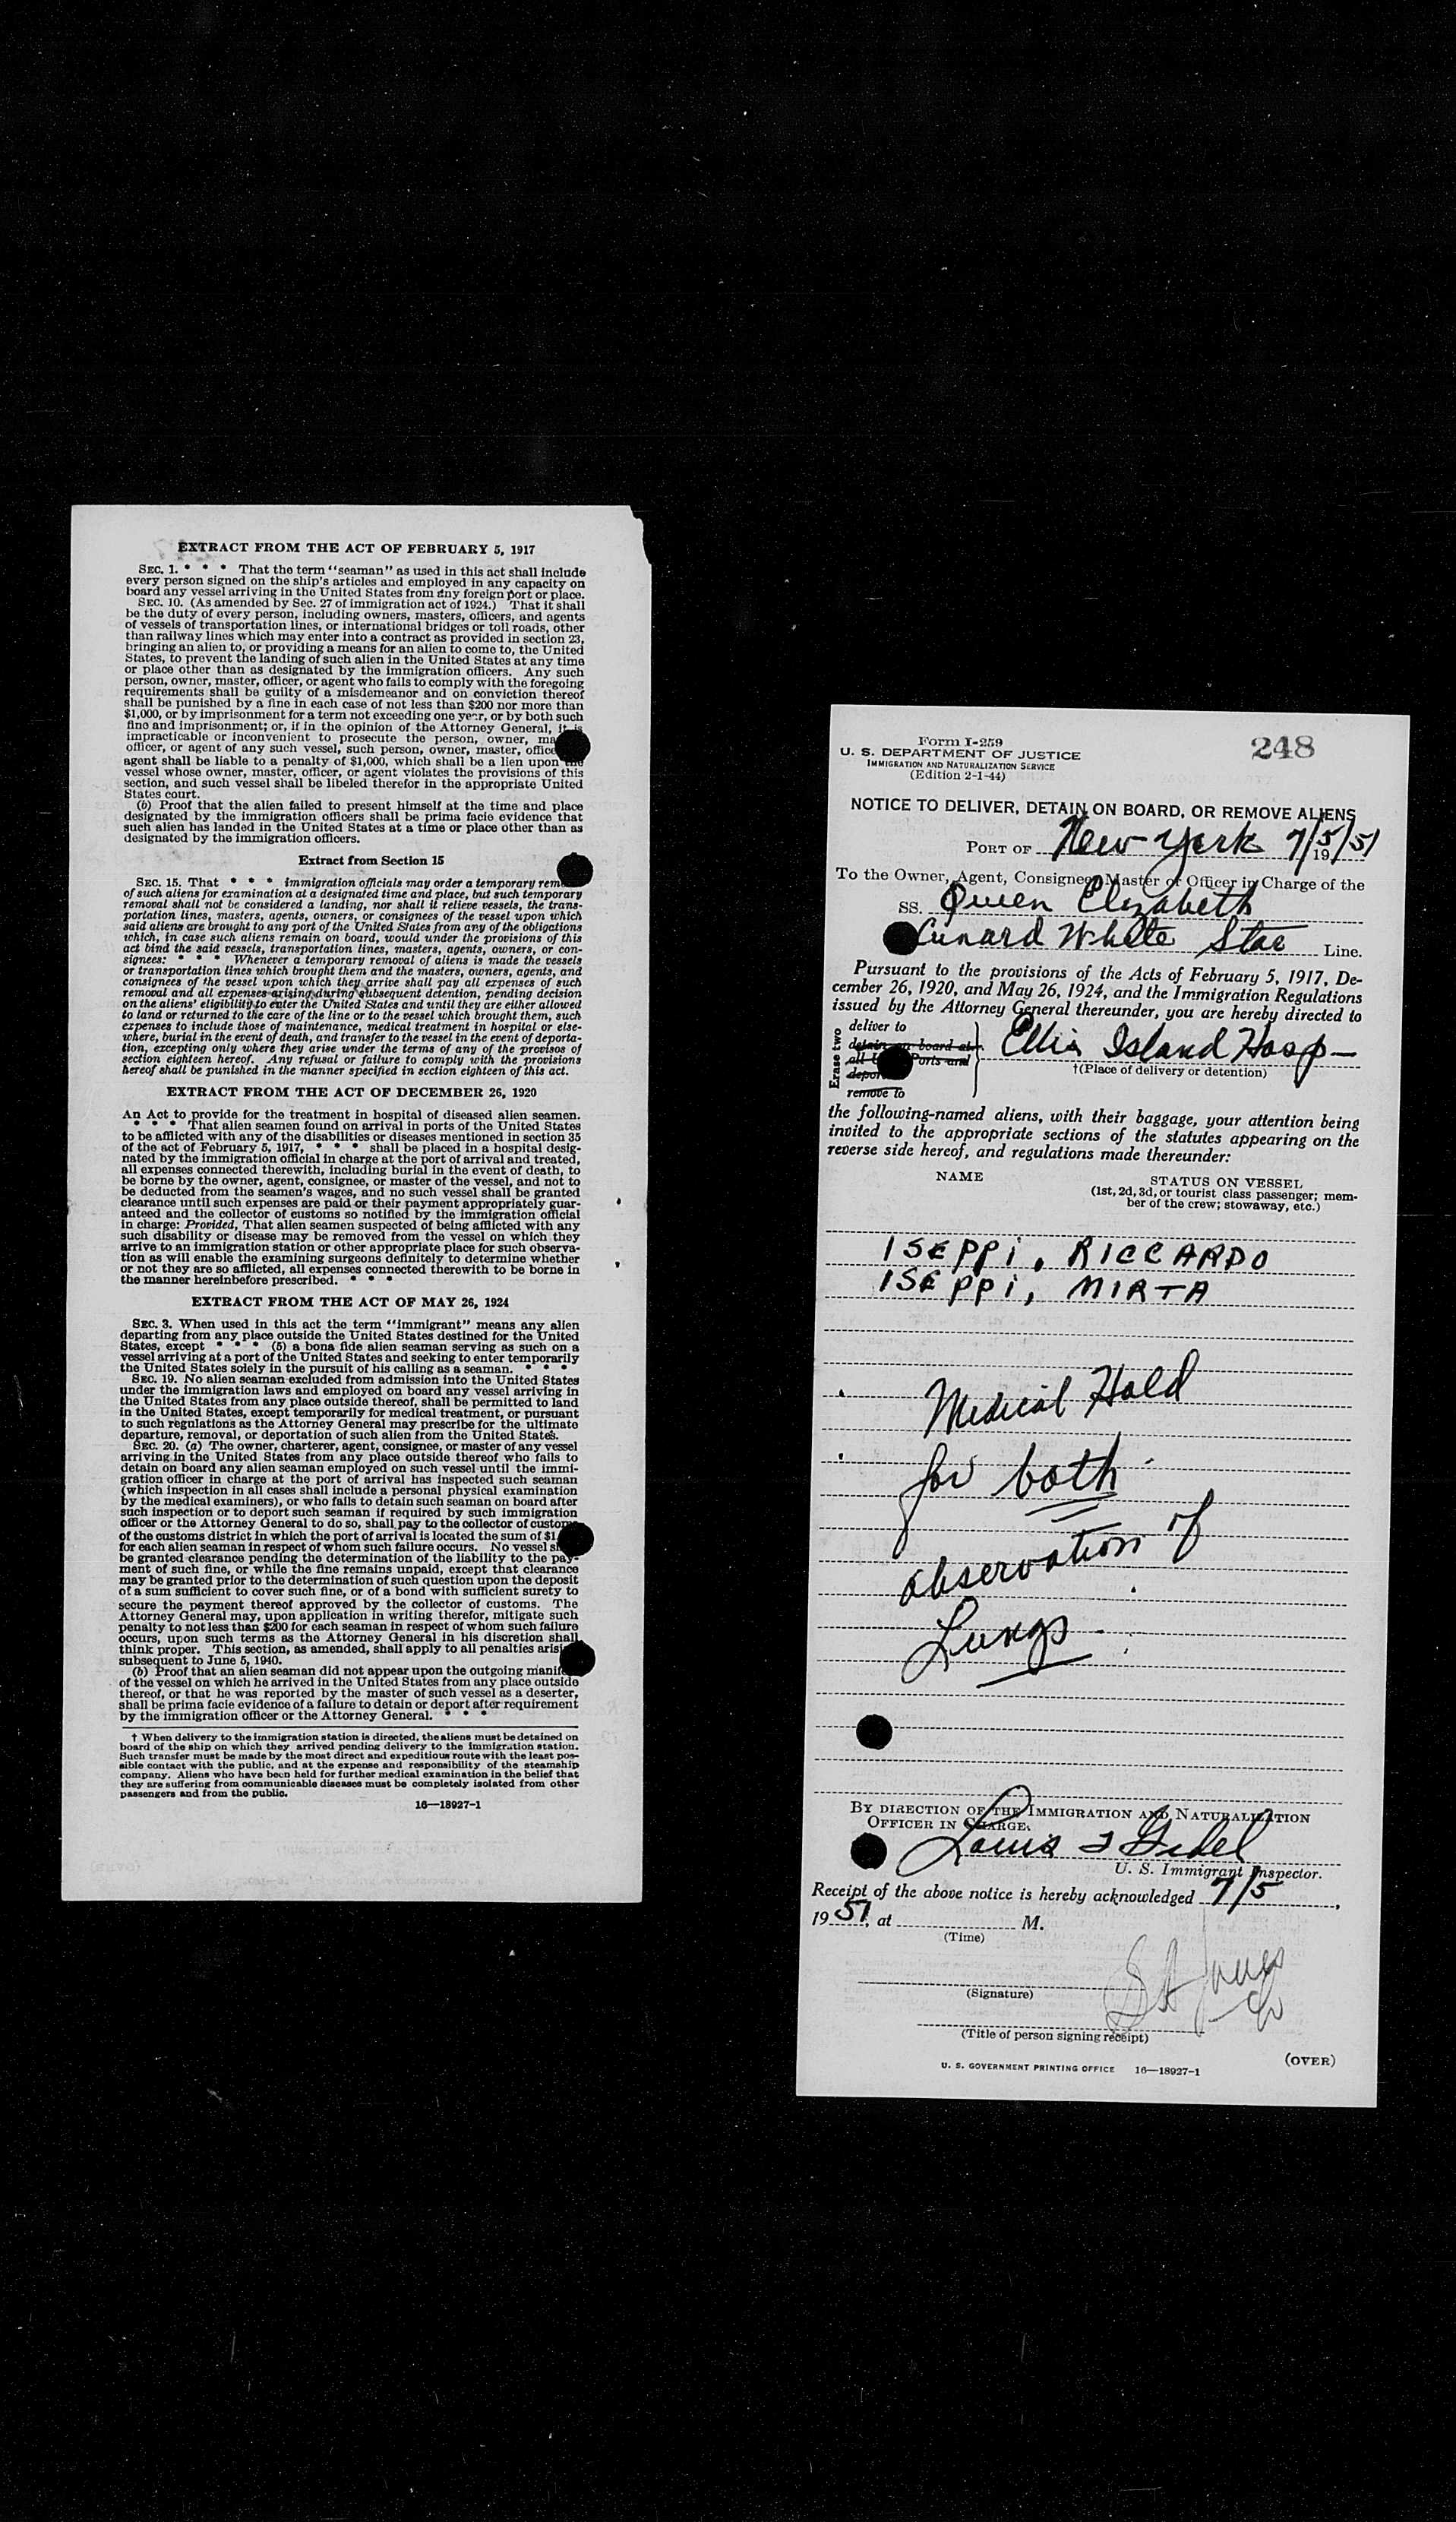 EXTRACT FROM THE ACT OF FEBRUARY 5, 1917
SEC. 1. * * * That the term "seaman" as used in this act shall include
every person signed on the ship's articles and employed in any capacity on
board any vessel arriving in the United States from any foreign port or place.
SEC. 10. (As amended by Sec. 27 of immigration act of 1924.) That it shall
be the duty of every person, including owners, masters, officers, and agents
of vessels of transportation lines, or international bridges or toll roads, other
than railway lines which may enter into a contract as provided in section 23,
bringing an alien to, or providing a means for an alien to come to, the United
States, to prevent the landing of such alien in the United States at any time
or place other than as designated by the immigration officers. Any such
person, owner, master, officer, or agent who fails to comply with the foregoing
requirements shall be guilty of a misdemeanor and on conviction thereof
shall be punished by a fine in each case of not less than $200 nor more than
$1,000, or by imprisonment for a term not exceeding one year, or by both such
fine and imprisonment; or, if in the opinion of the Attorney General, it is
impracticable or inconvenient to prosecute the person, owner, ma
officer, or agent of any such vessel, such person, owner, master, office
agent shall be liable to a penalty of $1,000, which shall be a lien upon the
vessel whose owner, master, officer, or agent violates the provisions of this
section, and such vessel shall be libeled therefor in the appropriate United
States court.
(b) Proof that the alien failed to present himself at the time and place
designated by the immigration officers shall be prima facie evidence that
such alien has landed in the United States at a time or place other than as
designated by the immigration officers.
Extract from Section 15
SEC. 15. That * * * immigration officials may order a temporary rem
of such aliens for examination at a designated time and place, but such temporary
removal shall not be considered a landing, nor shall it relieve vessels, the trans-
portation lines, masters, agents, owners, or consignees of the vessel upon which
said aliens are brought to any port of the United States from any of the obligations
which, in case such aliens remain on board, would under the provisions of this
act bind the said vessels, transportation lines, masters, agents, owners, or con-
signees: * * * Whenever a temporary removal of aliens is made the vessels
or transportation lines which brought them and the masters, owners, agents, and
consignees of the vessel upon which they arrive shall pay all expenses of such
removal and all expenses arising during subsequent detention, pending decision
on the aliens' eligibility to enter the United States and until they are either allowed
to land or returned to the care of the line or to the vessel which brought them, such
expenses to include those of maintenance, medical treatment in hospital or else-
where, burial in the event of death, and transfer to the vessel in the event of deporta-
tion, excepting only where they arise under the terms of any of the provisos of
section eighteen hereof. Any refusal or failure to comply with the provisions
hereof shall be punished in the manner specified in section eighteen of this act.
EXTRACT FROM THE ACT OF DECEMBER 26, 1920
An Act to provide for the treatment in hospital of diseased alien seamen.
* * * * That alien seamen found on arrival in ports of the United States
to be afflicted with any of the disabilities or diseases mentioned in section 35
of the act of February 5, 1917, * * * shall be placed in a hospital desig-
nated by the immigration official in charge at the port of arrival and treated,
all expenses connected therewith, including burial in the event of death, to
be borne by the owner, agent, consignee, or master of the vessel, and not to
be deducted from the seamen's wages, and no such vessel shall be granted
clearance until such expenses are paid or their payment appropriately guar-
anteed and the collector of customs so notified by the immigration official
in charge: Provided, That alien seamen suspected of being afflicted with any
such disability or disease may be removed from the vessel on which they
arrive to an immigration station or other appropriate place for such observa-
tion as will enable the examining surgeons definitely to determine whether
or not they are so afflicted, all expenses connected therewith to be borne in
the manner hereinbefore prescribed. * * *
EXTRACT FROM THE ACT OF MAY 26, 1924
SEC. 3. When used in this act the term "immigrant" means any alien
departing from any place outside the United States destined for the United
States, except * * * (5) a bona fide alien seaman serving as such on a
vessel arriving at a port of the United States and seeking to enter temporarily
the United States solely in the pursuit of his calling as a seaman. * * *
SEC. 19. No alien seaman excluded from admission into the United States
under the immigration laws and employed on board any vessel arriving in
the United States from any place outside thereof, shall be permitted to land
in the United States, except temporarily for medical treatment, or pursuant
to such regulations as the Attorney General may prescribe for the ultimate
departure, removal, or deportation of such alien from the United States.
SEC. 20. (a) The owner, charterer, agent, consignee, or master of any vessel
arriving in the United States from any place outside thereof who fails to
detain on board any alien seaman employed on such vessel until the immi-
gration officer in charge at the port of arrival has inspected such seaman
(which inspection in all cases shall include a personal physical examination
by the medical examiners), or who fails to detain such seaman on board after
such inspection or to deport such seaman if required by such immigration
officer or the Attorney General to do so, shall pay to the collector of customs
of the customs district in which the port of arrival is located the sum of $1
for each alien seaman in respect of whom such failure occurs. No vessel s
be granted clearance pending the determination of the liability to the pay-
ment of such fine, or while the fine remains unpaid, except that clearance
may be granted prior to the determination of such question upon the deposit
of a sum sufficient to cover such fine, or of a bond with sufficient surety to
secure the payment thereof approved by the collector of customs. The
Attorney General may, upon application in writing therefor, mitigate such
penalty to not less than $200 for each seaman in respect of whom such failure
occurs, upon such terms as the Attorney General in his discretion shall
think proper. This section, as amended, shall apply to all penalties arisi
subsequent to June 5, 1940.
(b) Proof that an alien seaman did not appear upon the outgoing manif
of the vessel on which he arrived in the United States from any place outside
thereof, or that he was reported by the master of such vessel as a deserter,
shall be prima facie evidence of a failure to detain or deport after requirement
by the immigration officer or the Attorney General. * * *
† When delivery to the immigration station is directed, the aliens must be detained on
board of the ship on which they arrived pending delivery to the immigration station.
Such transfer must be made by the most direct and expeditious route with the least pos-
sible contact with the public, and at the expense and responsibility of the steamship
company. Aliens who have been held for further medical examination in the belief that
they are suffering from communicable diseases must be completely isolated from other
passengers and from the public.
16—18927-1
Form I-259
U. S. DEPARTMENT OF JUSTICE
IMMIGRATION AND NATURALIZATION SERVICE
(Edition 2-1-44)
248
NOTICE TO DELIVER, DETAIN ON BOARD, OR REMOVE ALIENS
PORT OF New York 7/5/51 19
To the Owner, Agent, Consignee, Master or Officer in Charge of the
SS. Queen Elizabeth
Cunard White Star Line.
Pursuant to the provisions of the Acts of February 5, 1917, De-
cember 26, 1920, and May 26, 1924, and the Immigration Regulations
issued by the Attorney General thereunder, you are hereby directed to
Erase two
deliver to
detain on board at
all U Ports and
depor
remove to
Ellis Island Hosp—
†(Place of delivery or detention)
the following-named aliens, with their baggage, your attention being
invited to the appropriate sections of the statutes appearing on the
reverse side hereof, and regulations made thereunder:
NAME
STATUS ON VESSEL
(1st, 2d, 3d, or tourist class passenger; mem-
ber of the crew; stowaway, etc.)
ISEPPI, RICCARDO
ISEPPI, MIRTA
Medical Hold
for both
observation of
Lungs
BY DIRECTION OF THE IMMIGRATION AND NATURALIZATION
OFFICER IN CHARGE.
Louis
U. S. Immigrant Inspector.
Receipt of the above notice is hereby acknowledged 7/5,
1951, at M.
(Time)
(Signature)
(Title of person signing receipt)
U. S. GOVERNMENT PRINTING OFFICE 16—18927-1
(OVER)